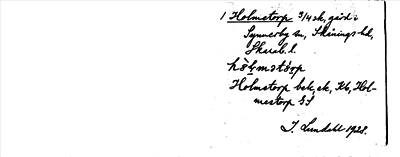 1 Holmstorp 3/4 sk, gård i
Synnerby sn, Skånings hd,
Skarab. l.
Holmstorp bek, ek, Kb, Hol-
mestorp GS
I. Lundahl 1928.